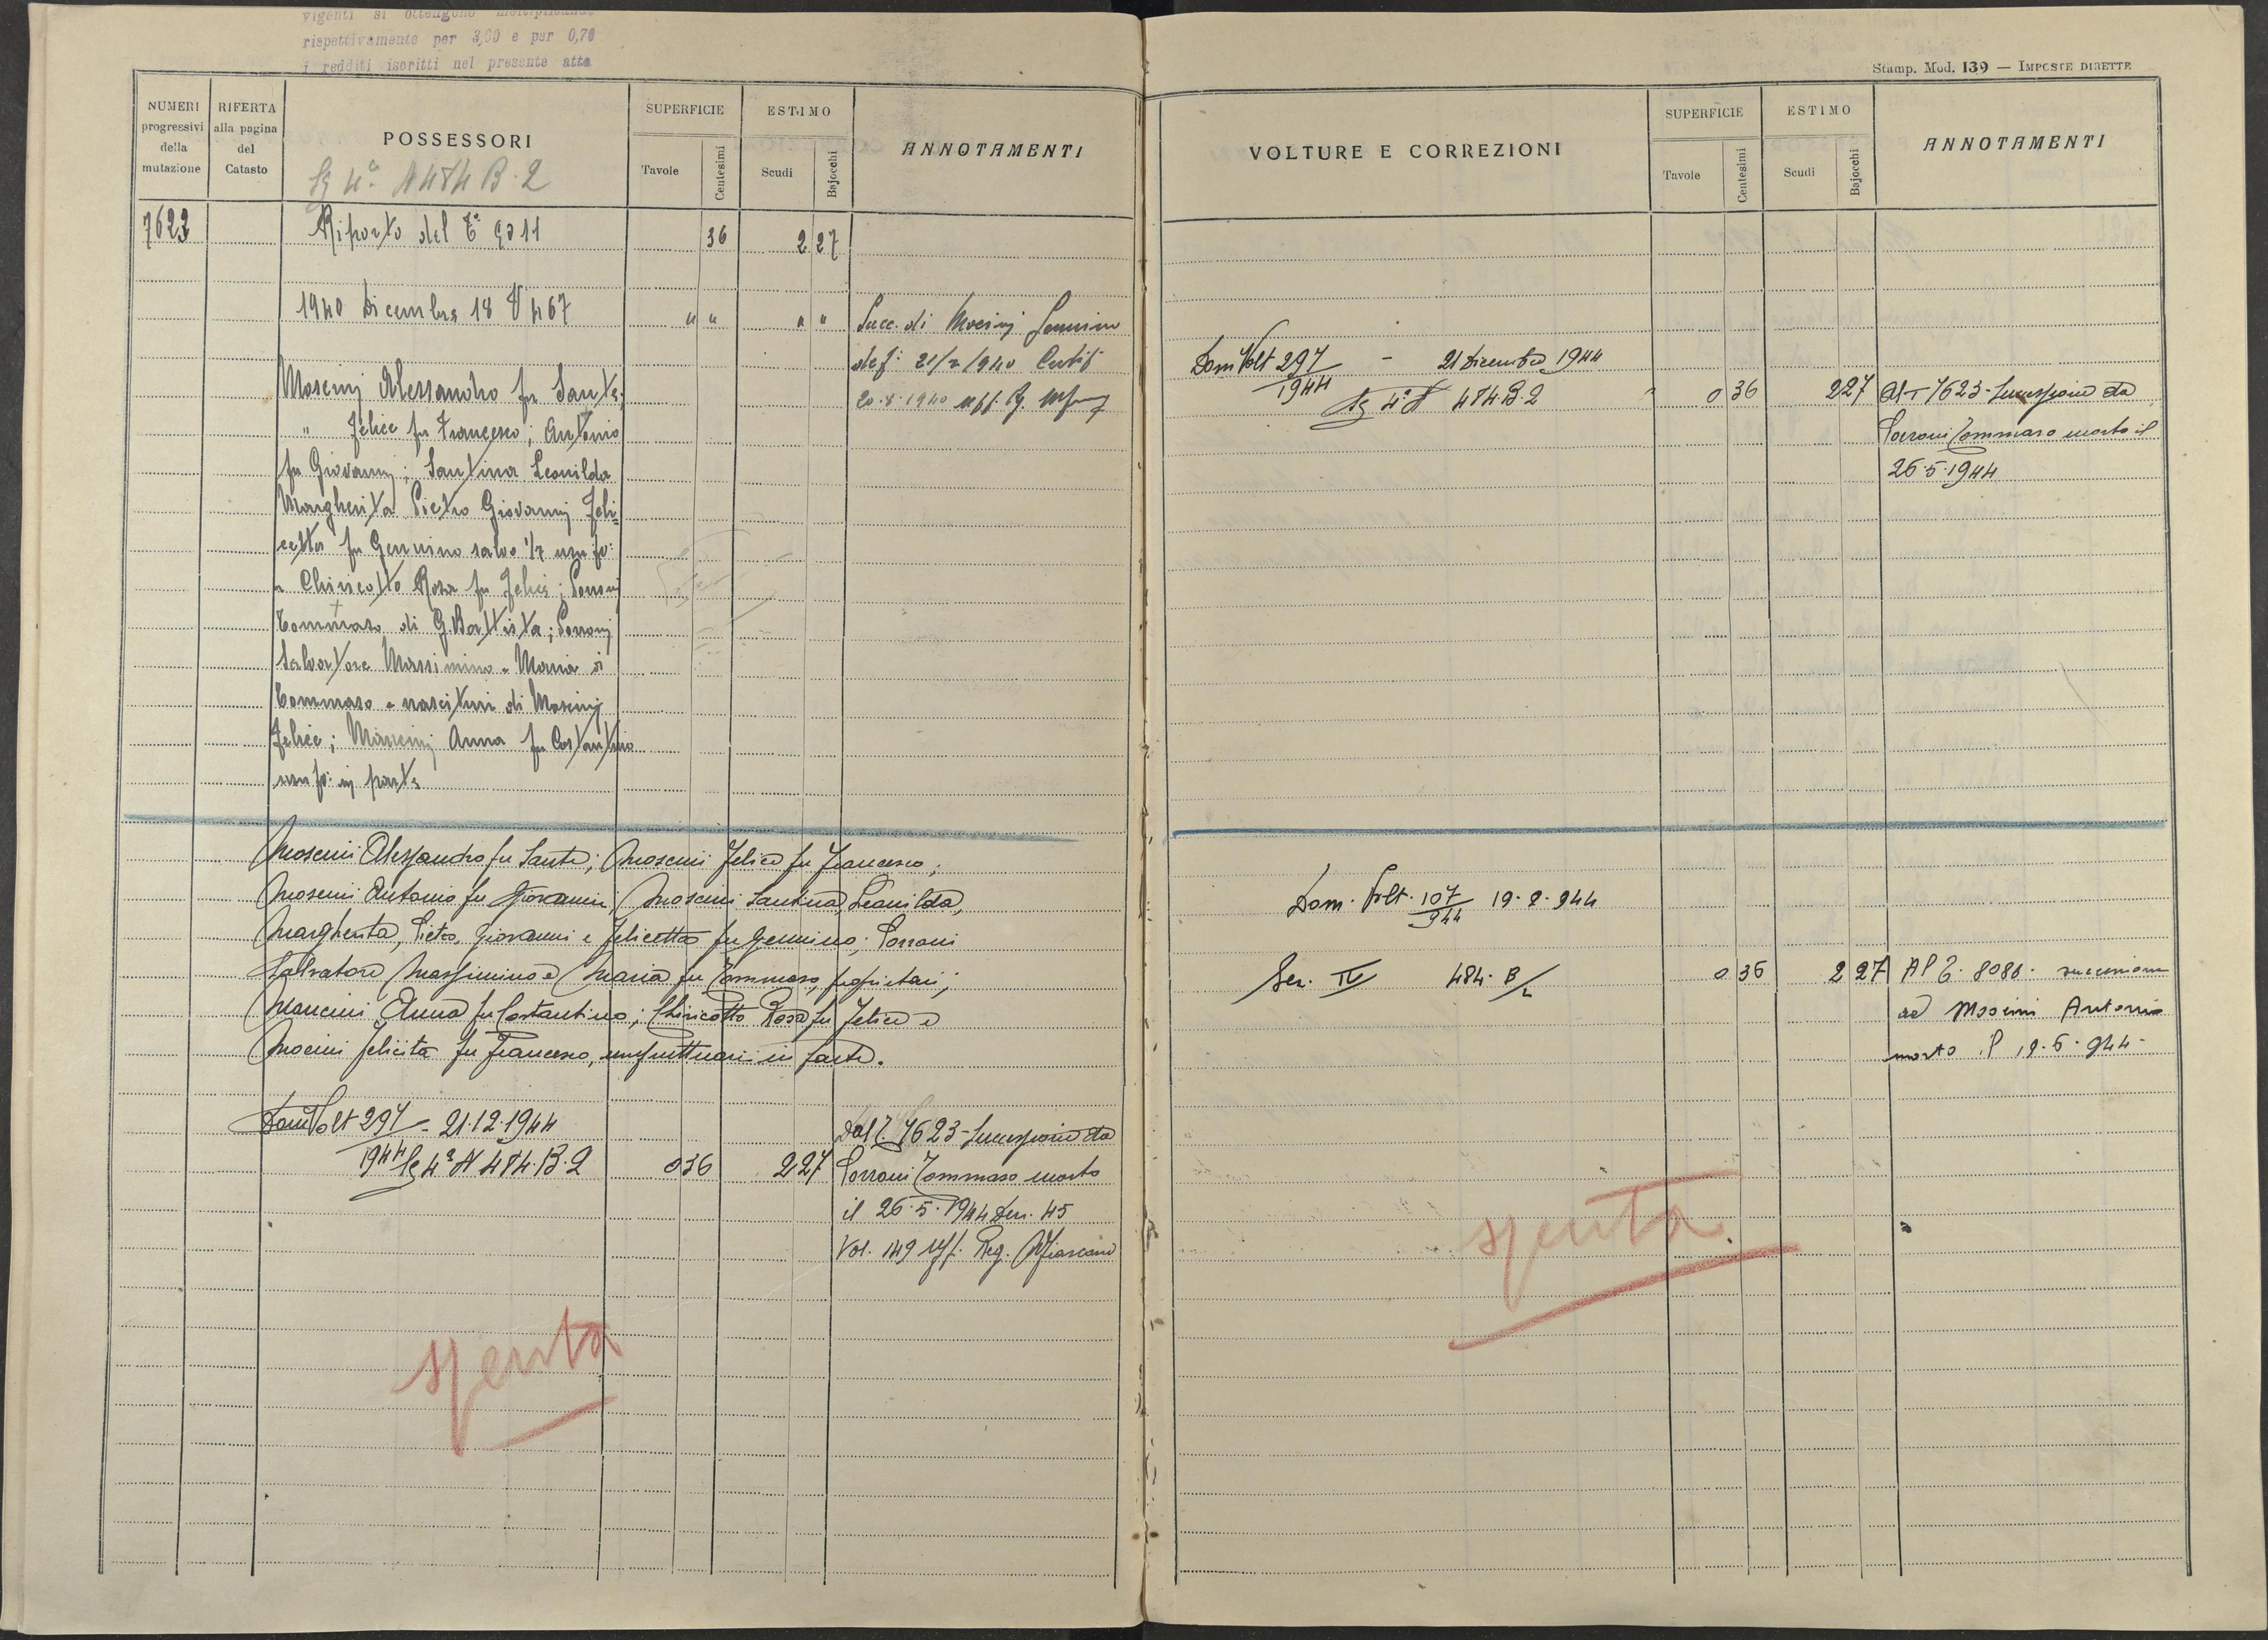 vigenti si ottengono moltiplicando
rispettivamente per 3,00 e per 0,70
i redditi iscritti nel presente atto
NUMERI progressivi della mutazione
RIFERTA alla pagina del Catasto
POSSESSORI
Sz 4ª N 484 B. 2
SUPERFICIE
Tavole
Centesimi
ESTIMO
Scudi
Bajocchi
ANNOTAMENTI
7623
Riporto del
36
2 27
1940 Dicembre 18 V 467
" "
" "
Succ. di
20.8.1940
Moscini Alessandro fu Sante;
" Felice fu Francesco; Antonio
fu Giovanni; Santina Leonilda
Margherita Pietro Giovanni Feli=
cetta fu Gennino salvo 1/7 usufo:
a Chiricotto Rosa fu Felice; Porroni
Tommaso di G.Battista; Porroni
Salvatore Massimino e Maria di
Tommaso e nascituri di Moscini
Felice; Mancini Anna fu Costantino
usufo: in parte
Moscini Alessandro fu Sante; Moscini Felice fu Francesco;
Moscini Antonio fu Giovanni; Moscini Santina, Leonilda,
Margherita, Pietro, Giovanni e Felicetta fu Gennino; Porroni
Salvatore Massimino e Maria fu Tommaso, proprietari;
Mancini Anna fu Costantino; Chiricotto Rosa fu Felice e
Mocini Felicita fu Francesco, usufruttuari in parte.
Dom Volt 297/1944 - 21.12.1944
Sz 4ª N 484.B.2
0 36
2 27
Dal T. 7623 - Successione da
Porroni Tommaso morto
il 26.5.1944 Den. 45
Vol. 149 Uff. Reg.
spenta
Stamp. Mod. 139 — IMPOSTE DIRETTE
VOLTURE E CORREZIONI
SUPERFICIE
Tavole
Centesimi
ESTIMO
Scudi
Bajocchi
ANNOTAMENTI
Dom Volt 297/1944 - 21 Dicembre 1944
Sz 4ª N 484.B.2
0 36
2 27
Al T 7623 - Successione da
Porroni Tommaso morto il
26.5.1944
Dom. Volt. 107/944 19.8.944
Sez. IV 484. B/2
0 36
2 27
Al T. 8086. successione
ad Moscini Antonio
morto il 19.6.944.
spenta